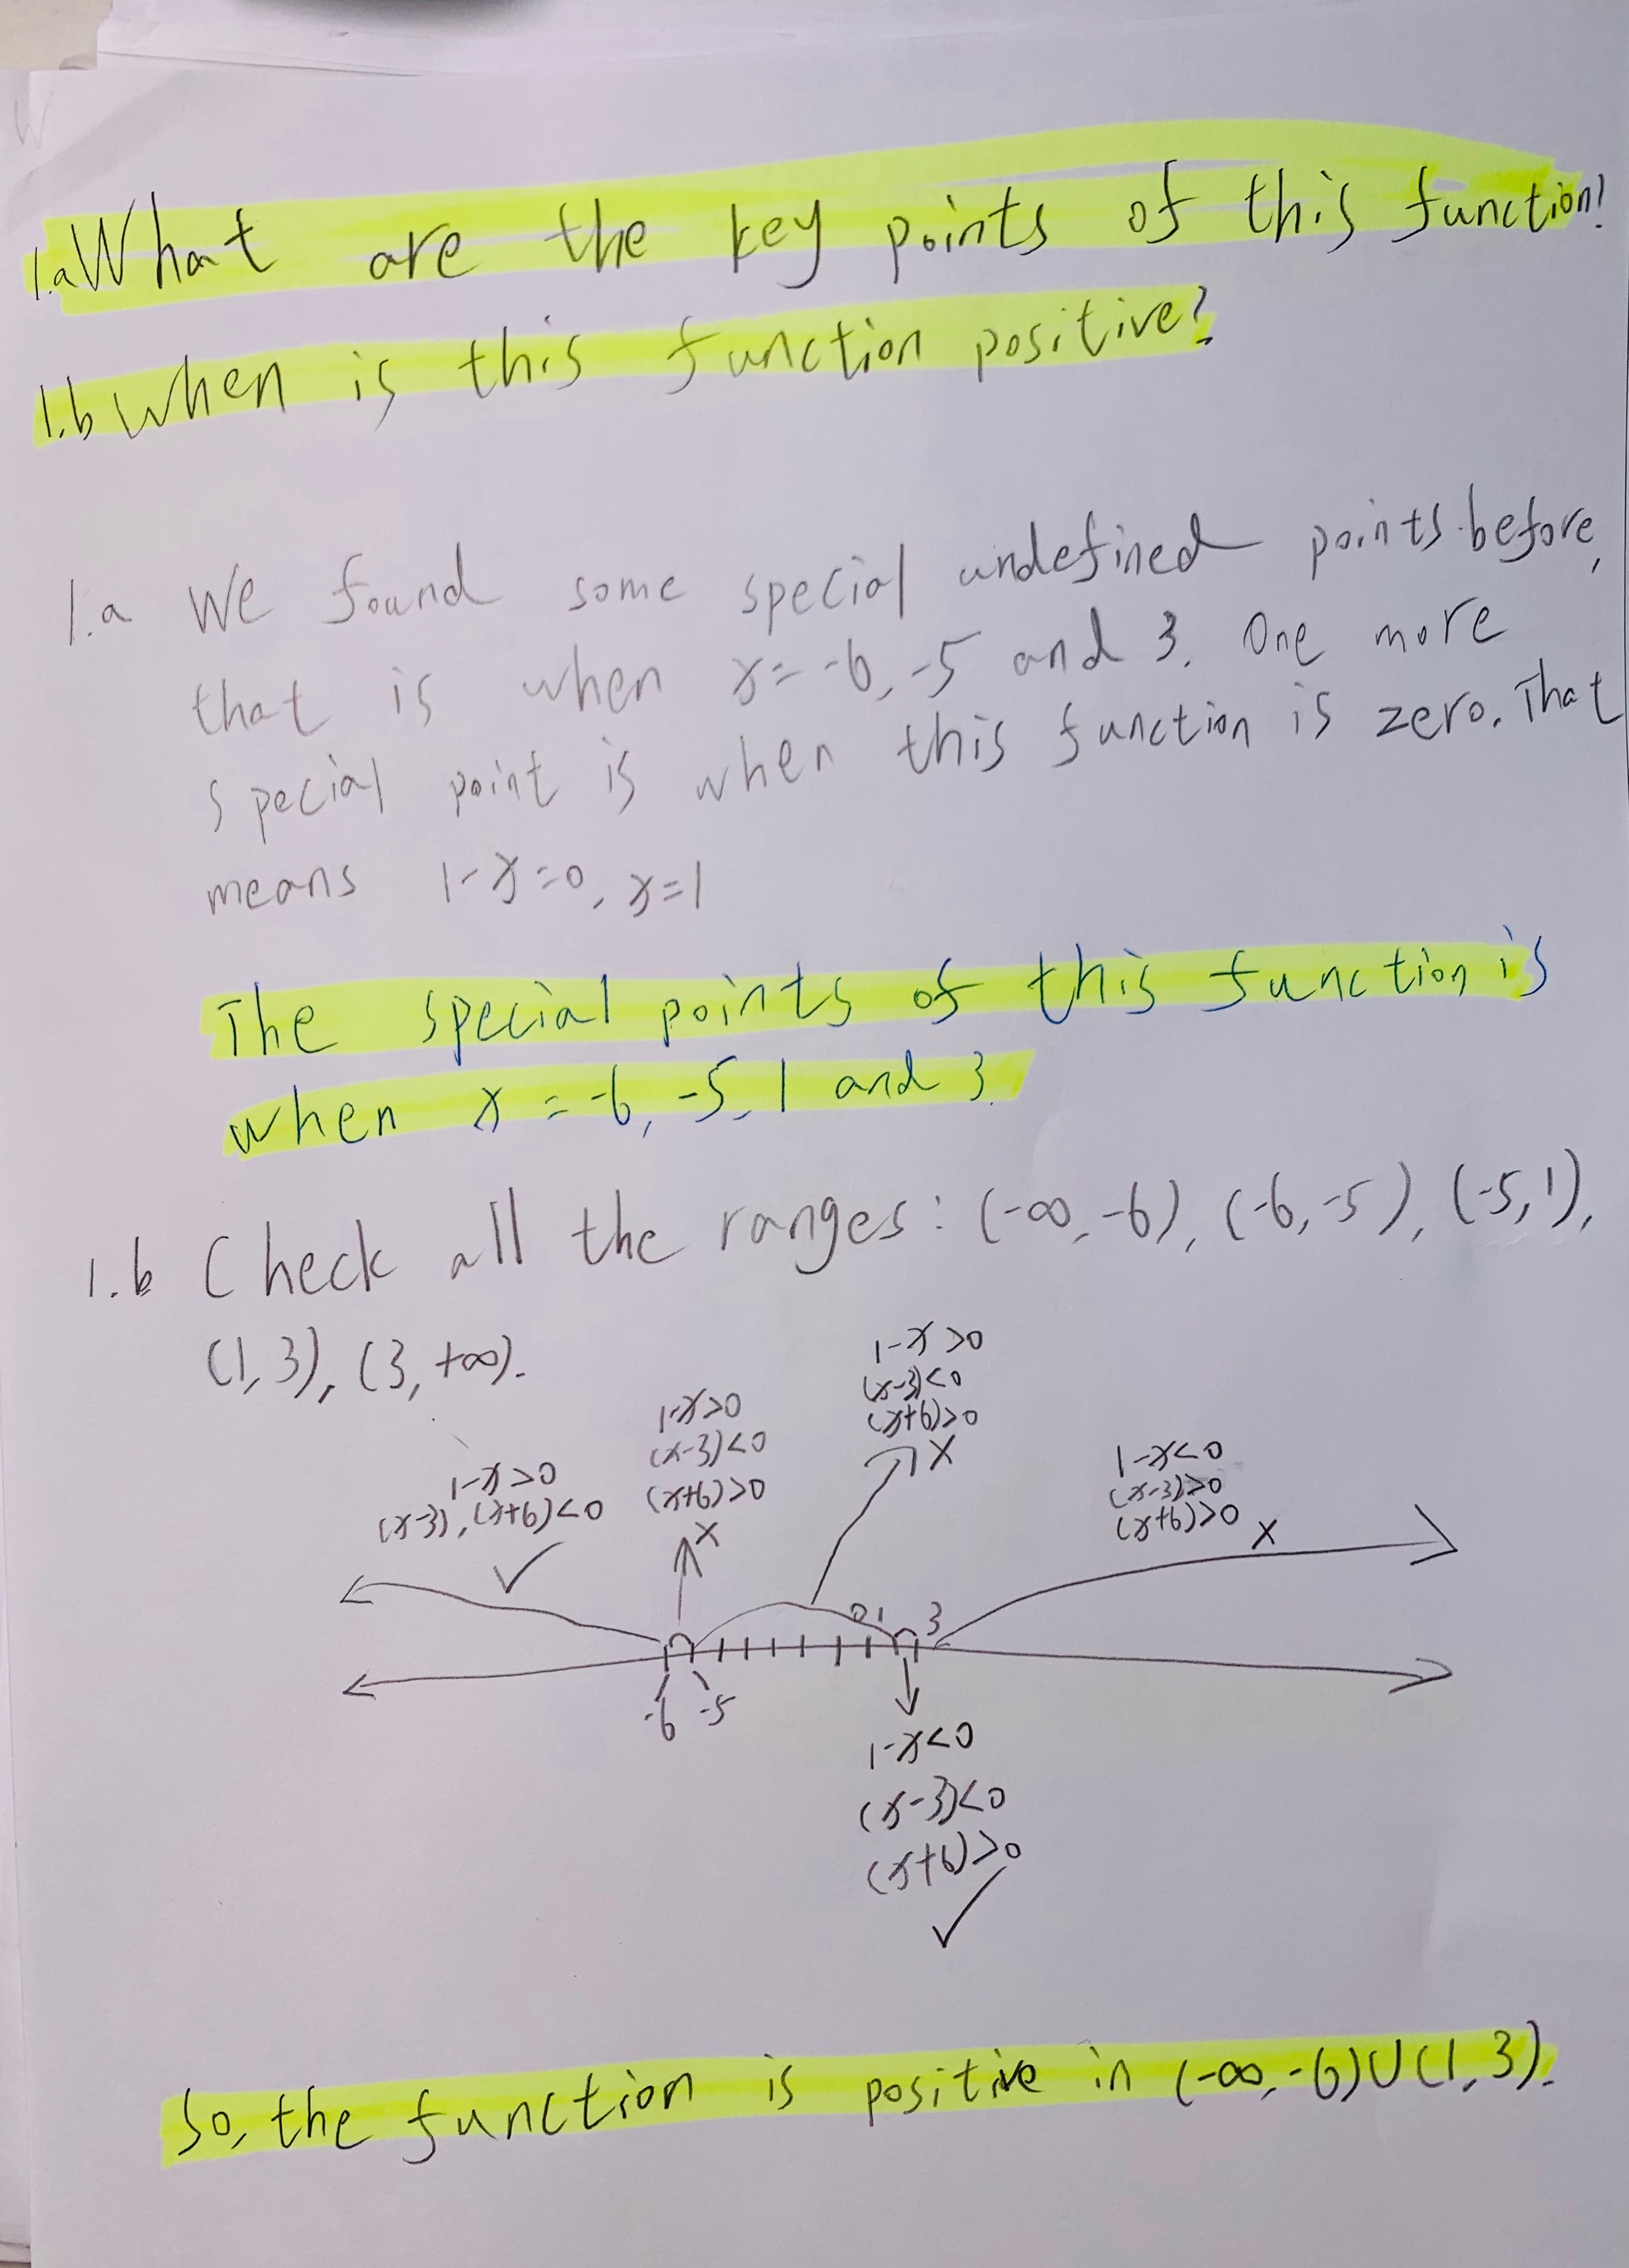 1.a What are the key points of this function?
1.b When is this function positive?
1.a We found some special undefined points before,
that is when x=-6, -5 and 3. One more
special point is when this function is zero. That
means 1-x=0, x=1
The special points of this function is
when x=-6, -5, 1 and 3.
1.b Check all the ranges: (-∞,-6), (-6,-5), (-5,1),
(1,3), (3,+∞).
1-x>0
(x-3),(x+6)<0
✓
1-x>0
(x-3)<0
(x+6)>0
X
1-x>0
(x-3)<0
(x+6)>0
X
1-x<0
(x-3)>0
(x+6)>0
X
-6 -5 0 1 3
1-x<0
(x-3)<0
(x+6)>0
✓
So, the function is positive in (-∞,-6)∪(1,3).